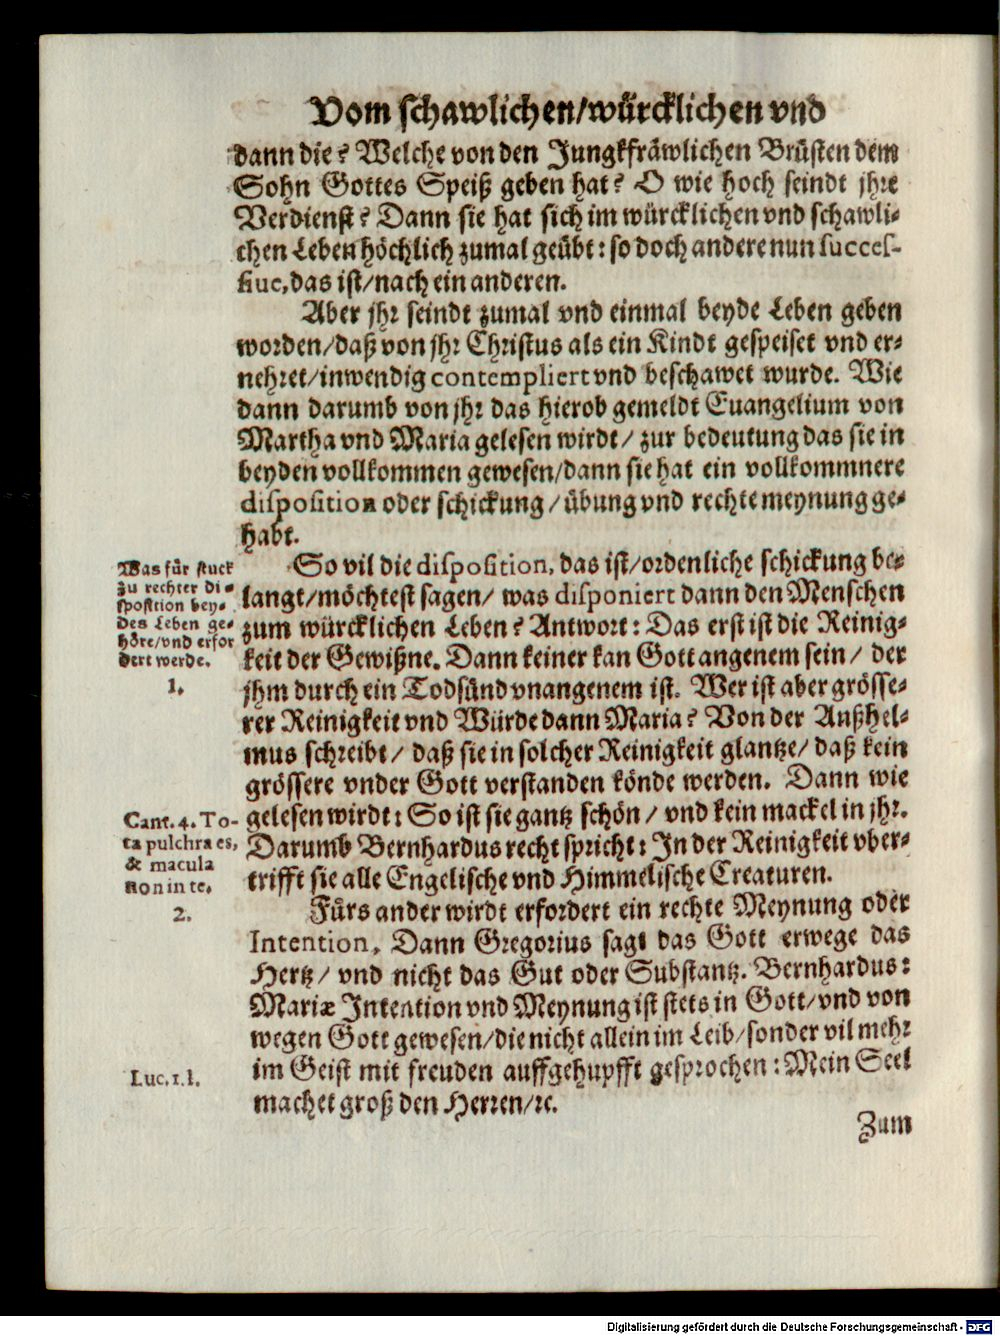 Vom schawlichen/würcklichen vnd
dann die? Welche von den Jungkfräwlichen Brüsten dem
Sohn Gottes Speiß geben hat? O wie hoch seindt jhre
Verdienst? Dann sie hat sich im würcklichen vnd schawli-
chen Leben höchlich zumal geübt: so doch andere nun succes-
siue, das ist/nach ein anderen.
Aber jhr seindt zumal vnd einmal beyde Leben geben
worden/daß von jhr Christus als ein Kindt gespeiset vnd er-
nehret/inwendig contempliert vnd beschawet wurde. Wie
dann darumb von jhr das hierob gemeldt Euangelium von
Martha vnd Maria gelesen wirdt/ zur bedeutung das sie in
beyden vollkommen gewesen/dann sie hat ein vollkommnere
disposition oder schickung/übung vnd rechte meynung ge-
habt.
Was für stuck
zu rechter di-
sposition bey-
des Leben ge-
höre/vnd erfor
dert werde.
1.
So vil die disposition, das ist/ordenliche schickung be-
langt/möchtest sagen/ was disponiert dann den Menschen
zum würcklichen Leben? Antwort: Das erst ist die Reinig-
keit der Gewißne. Dann keiner kan Gott angenem sein/ der
jhm durch ein Todsünd vnangenem ist. Wer ist aber grösse-
rer Reinigkeit vnd Würde dann Maria? Von der Anßhel-
mus schreibt/ daß sie in solcher Reinigkeit glantze/ daß kein
grössere vnder Gott verstanden könde werden. Dann wie
gelesen wirdt: So ist sie gantz schön/ vnd kein mackel in jhr.
Darumb Bernhardus recht spricht: In der Reinigkeit vber-
trifft sie alle Engelische vnd Himmelische Creaturen.
Cant. 4. To-
ta pulchra es,
& macula
non in te.
2.
Fürs ander wirdt erfordert ein rechte Meynung oder
Intention, Dann Gregorius sagt das Gott erwege das
Hertz/ vnd nicht das Gut oder Substantz. Bernhardus:
Mariæ Intention vnd Meynung ist stets in Gott/vnd von
wegen Gott gewesen/die nicht allein im Leib/sonder vil mehr
im Geist mit freuden auffgehupfft gesprochen: Mein Seel
machet groß den Herren/rc.
Luc. 1. l.
Zum
Digitalisierung gefördert durch die Deutsche Forschungsgemeinschaft - DFG